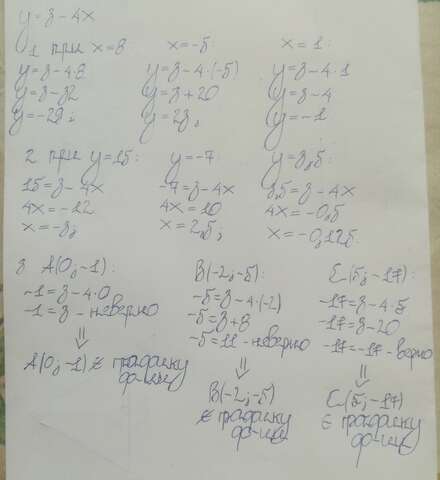 y=3-4x
1 при x=8 x=-5: x=1:
y=3-4·8 y=3-4·(-5) y=3-4·1
y=3-32 y=3+20 y=3-4
y=-29; y=23; y=-1
2 при y=15: y=-7: y=3,5:
15=3-4x -7=3-4x 3,5=3-4x
4x=-12 4x=10 4x=-0,5
x=-3; x=2,5; x=-0,125.
3 A(0;-1): B(-2;-5): C(5;-17):
-1=3-4·0 -5=3-4·(-2) -17=3-4·5
-1=3-неверно -5=3+8 -17=3-20
-5=11-неверно -17=-17-верно
⇓ ⇓ ⇓
A(0;-1) ∉ графику
ф-ции
B(-2;-5) C(5;-17)
∉ графику ∈ графику
ф-ции ф-ции